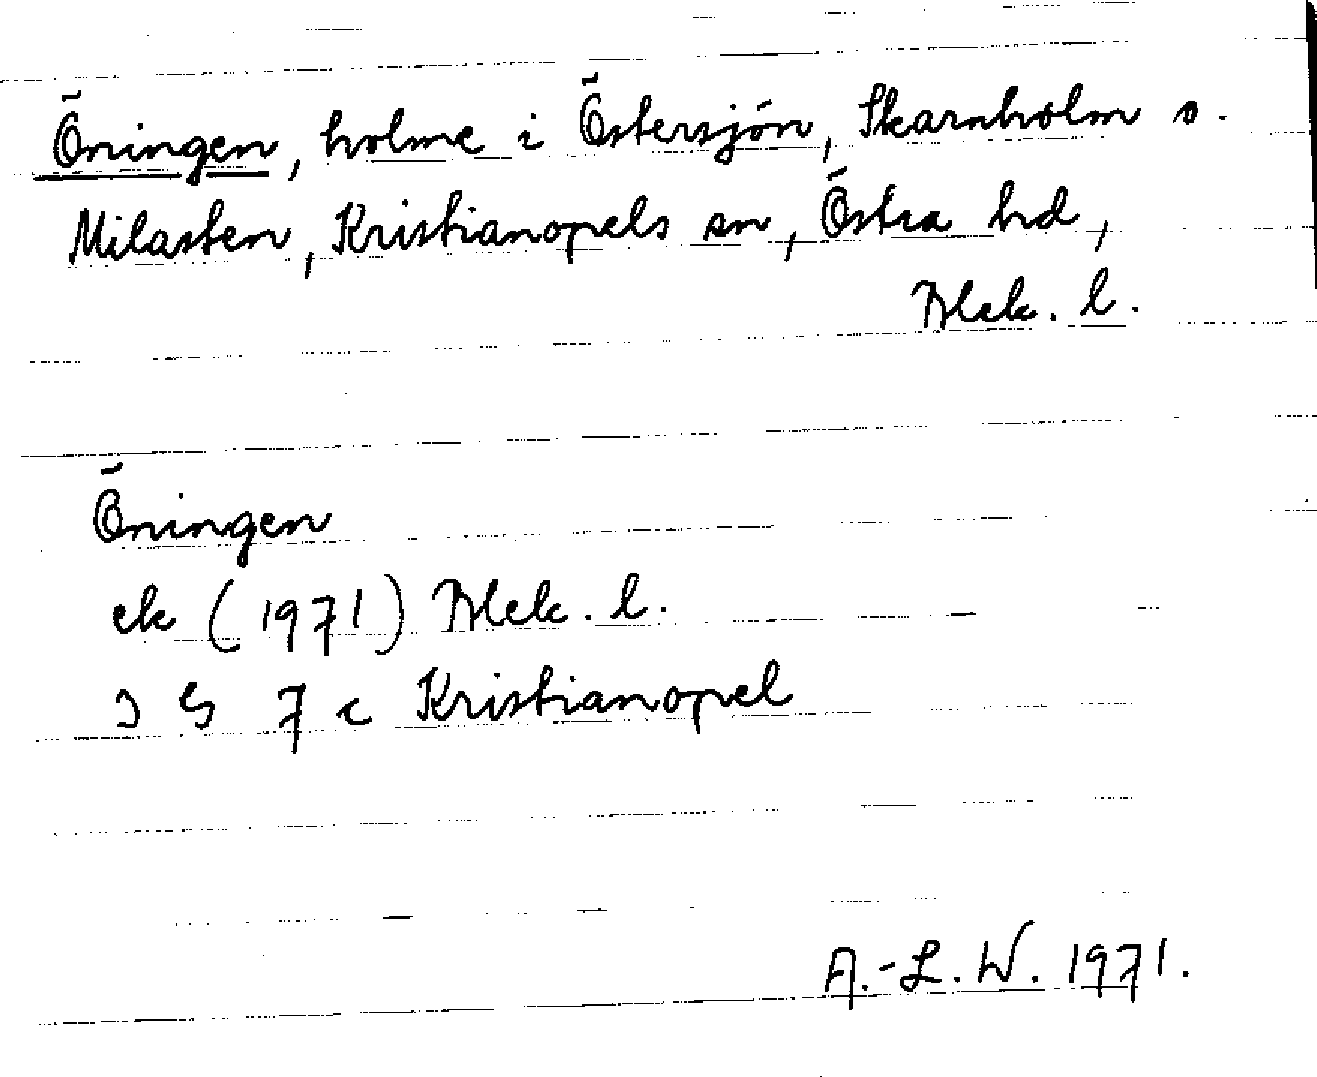 Öningen, holme i Östersjön, Skarnholm s.
Milasten, Kristianopels sn, Östra hd,
Blek. l.
Öningen
ek (1971) Blek. l.
3 G 7 c Kristianopel
A.-L. W. 1971.